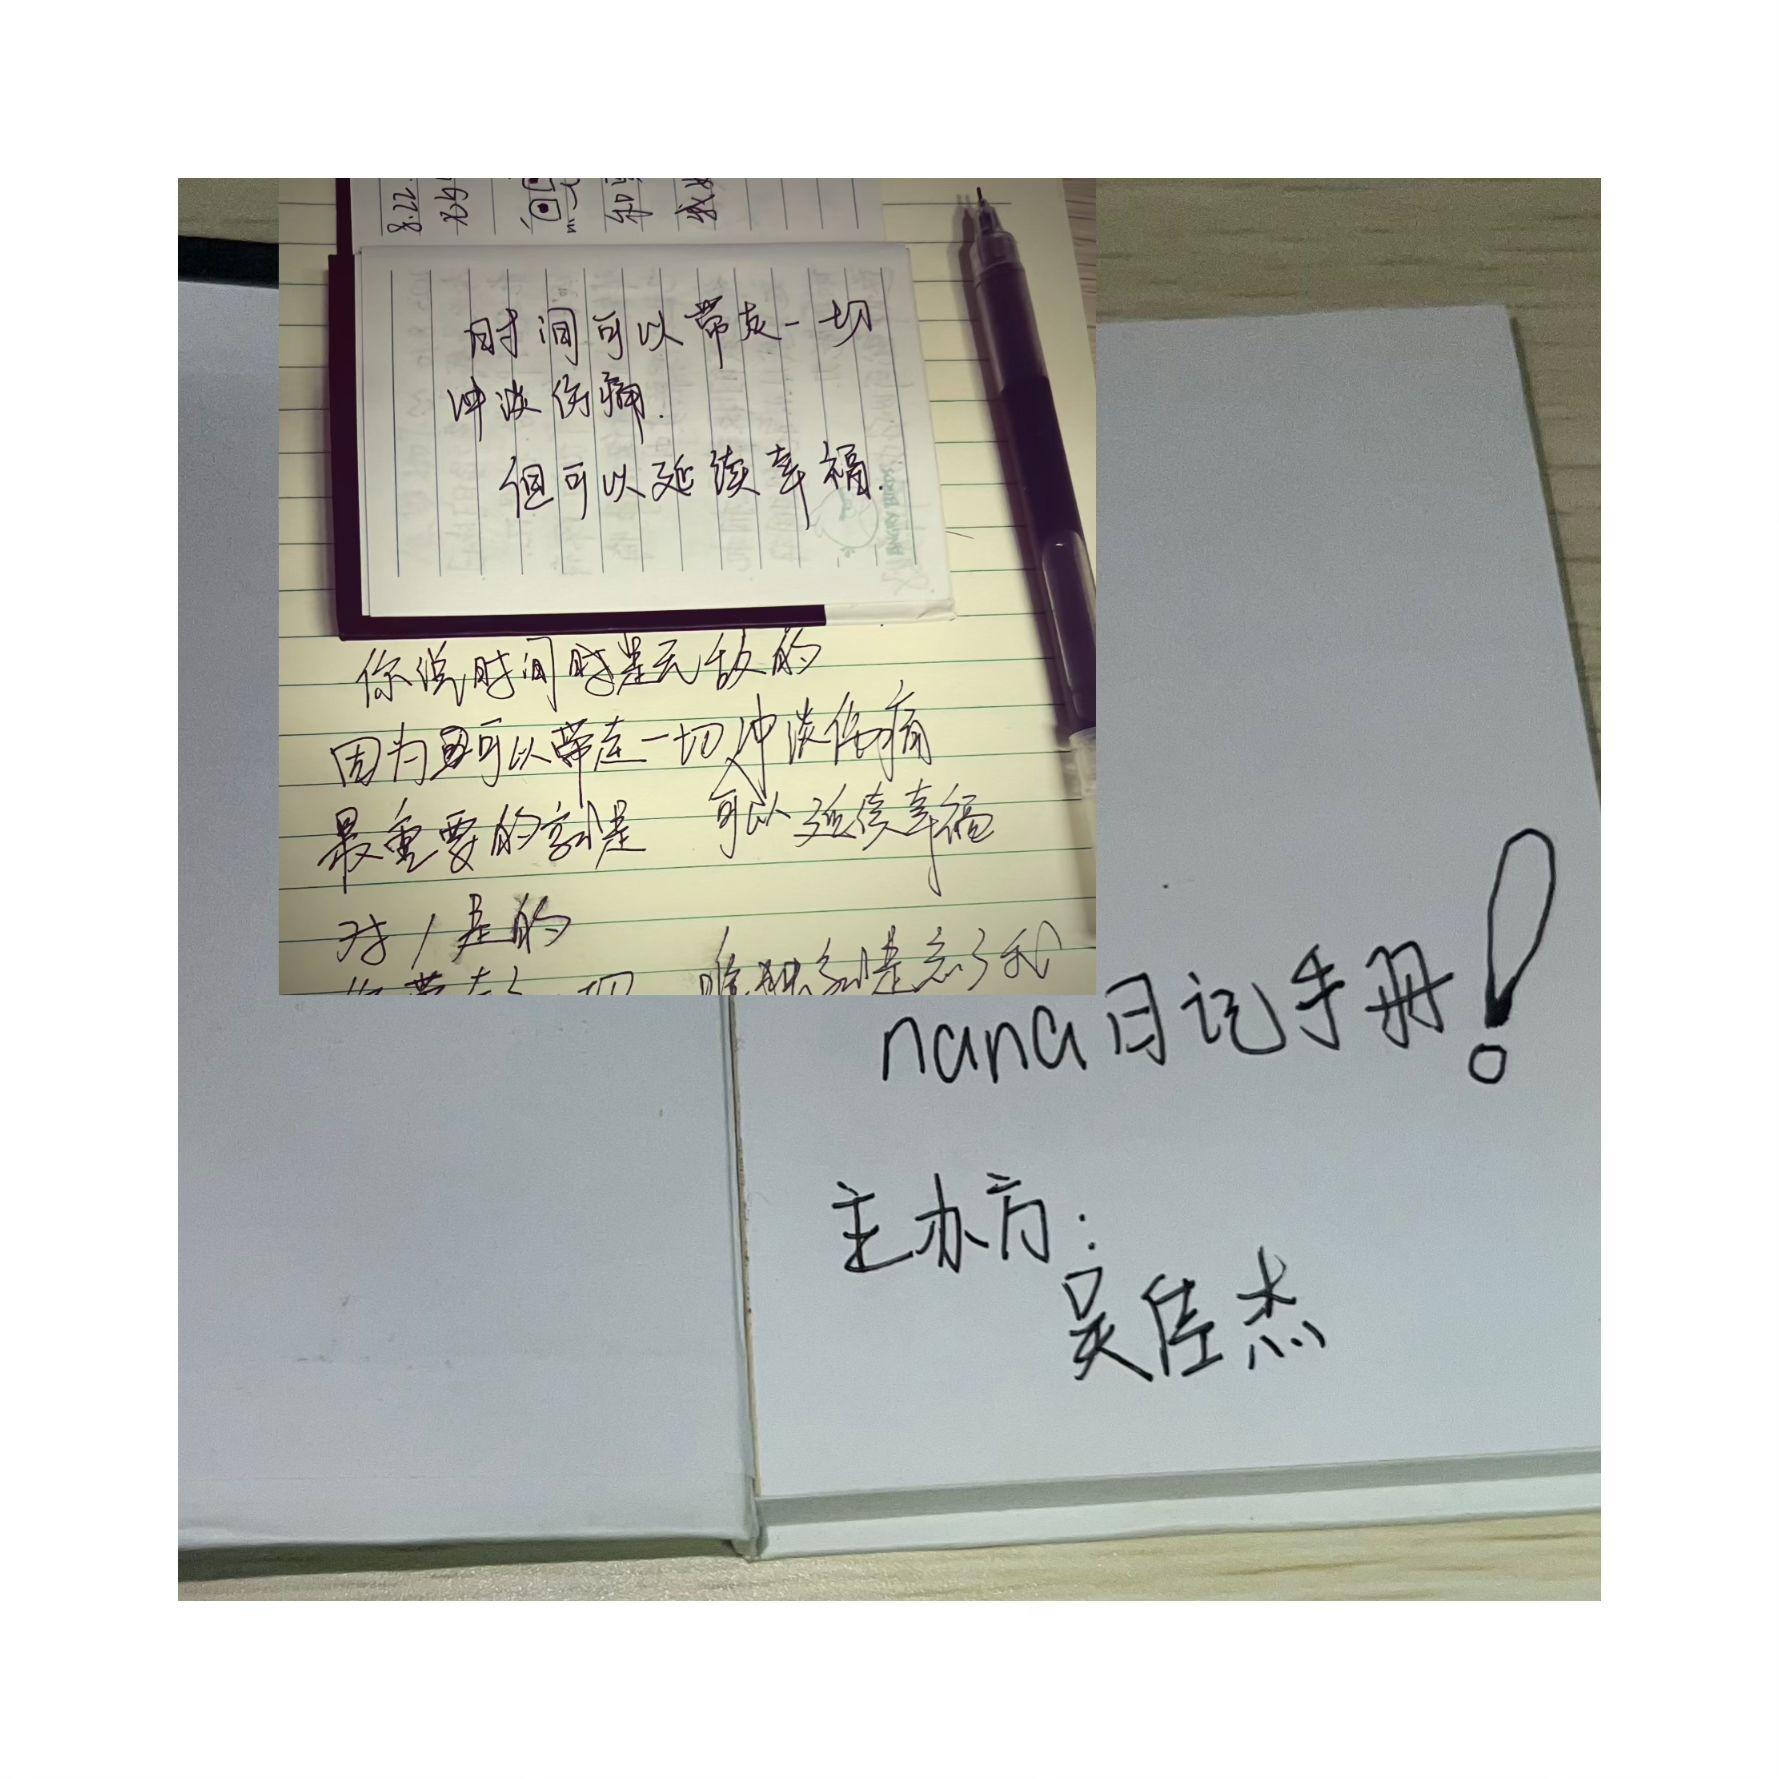 8.22
时间可以带走一切
冲淡伤痛.
但可以延续幸福.
ANGRY BIRDS
你说时间时是无敌的
因为可以带走一切冲淡伤痛
最重要的就是 可以延续幸福
对,是的
唯独就是忘了我
nana日记手册!
主办方:
吴佳杰